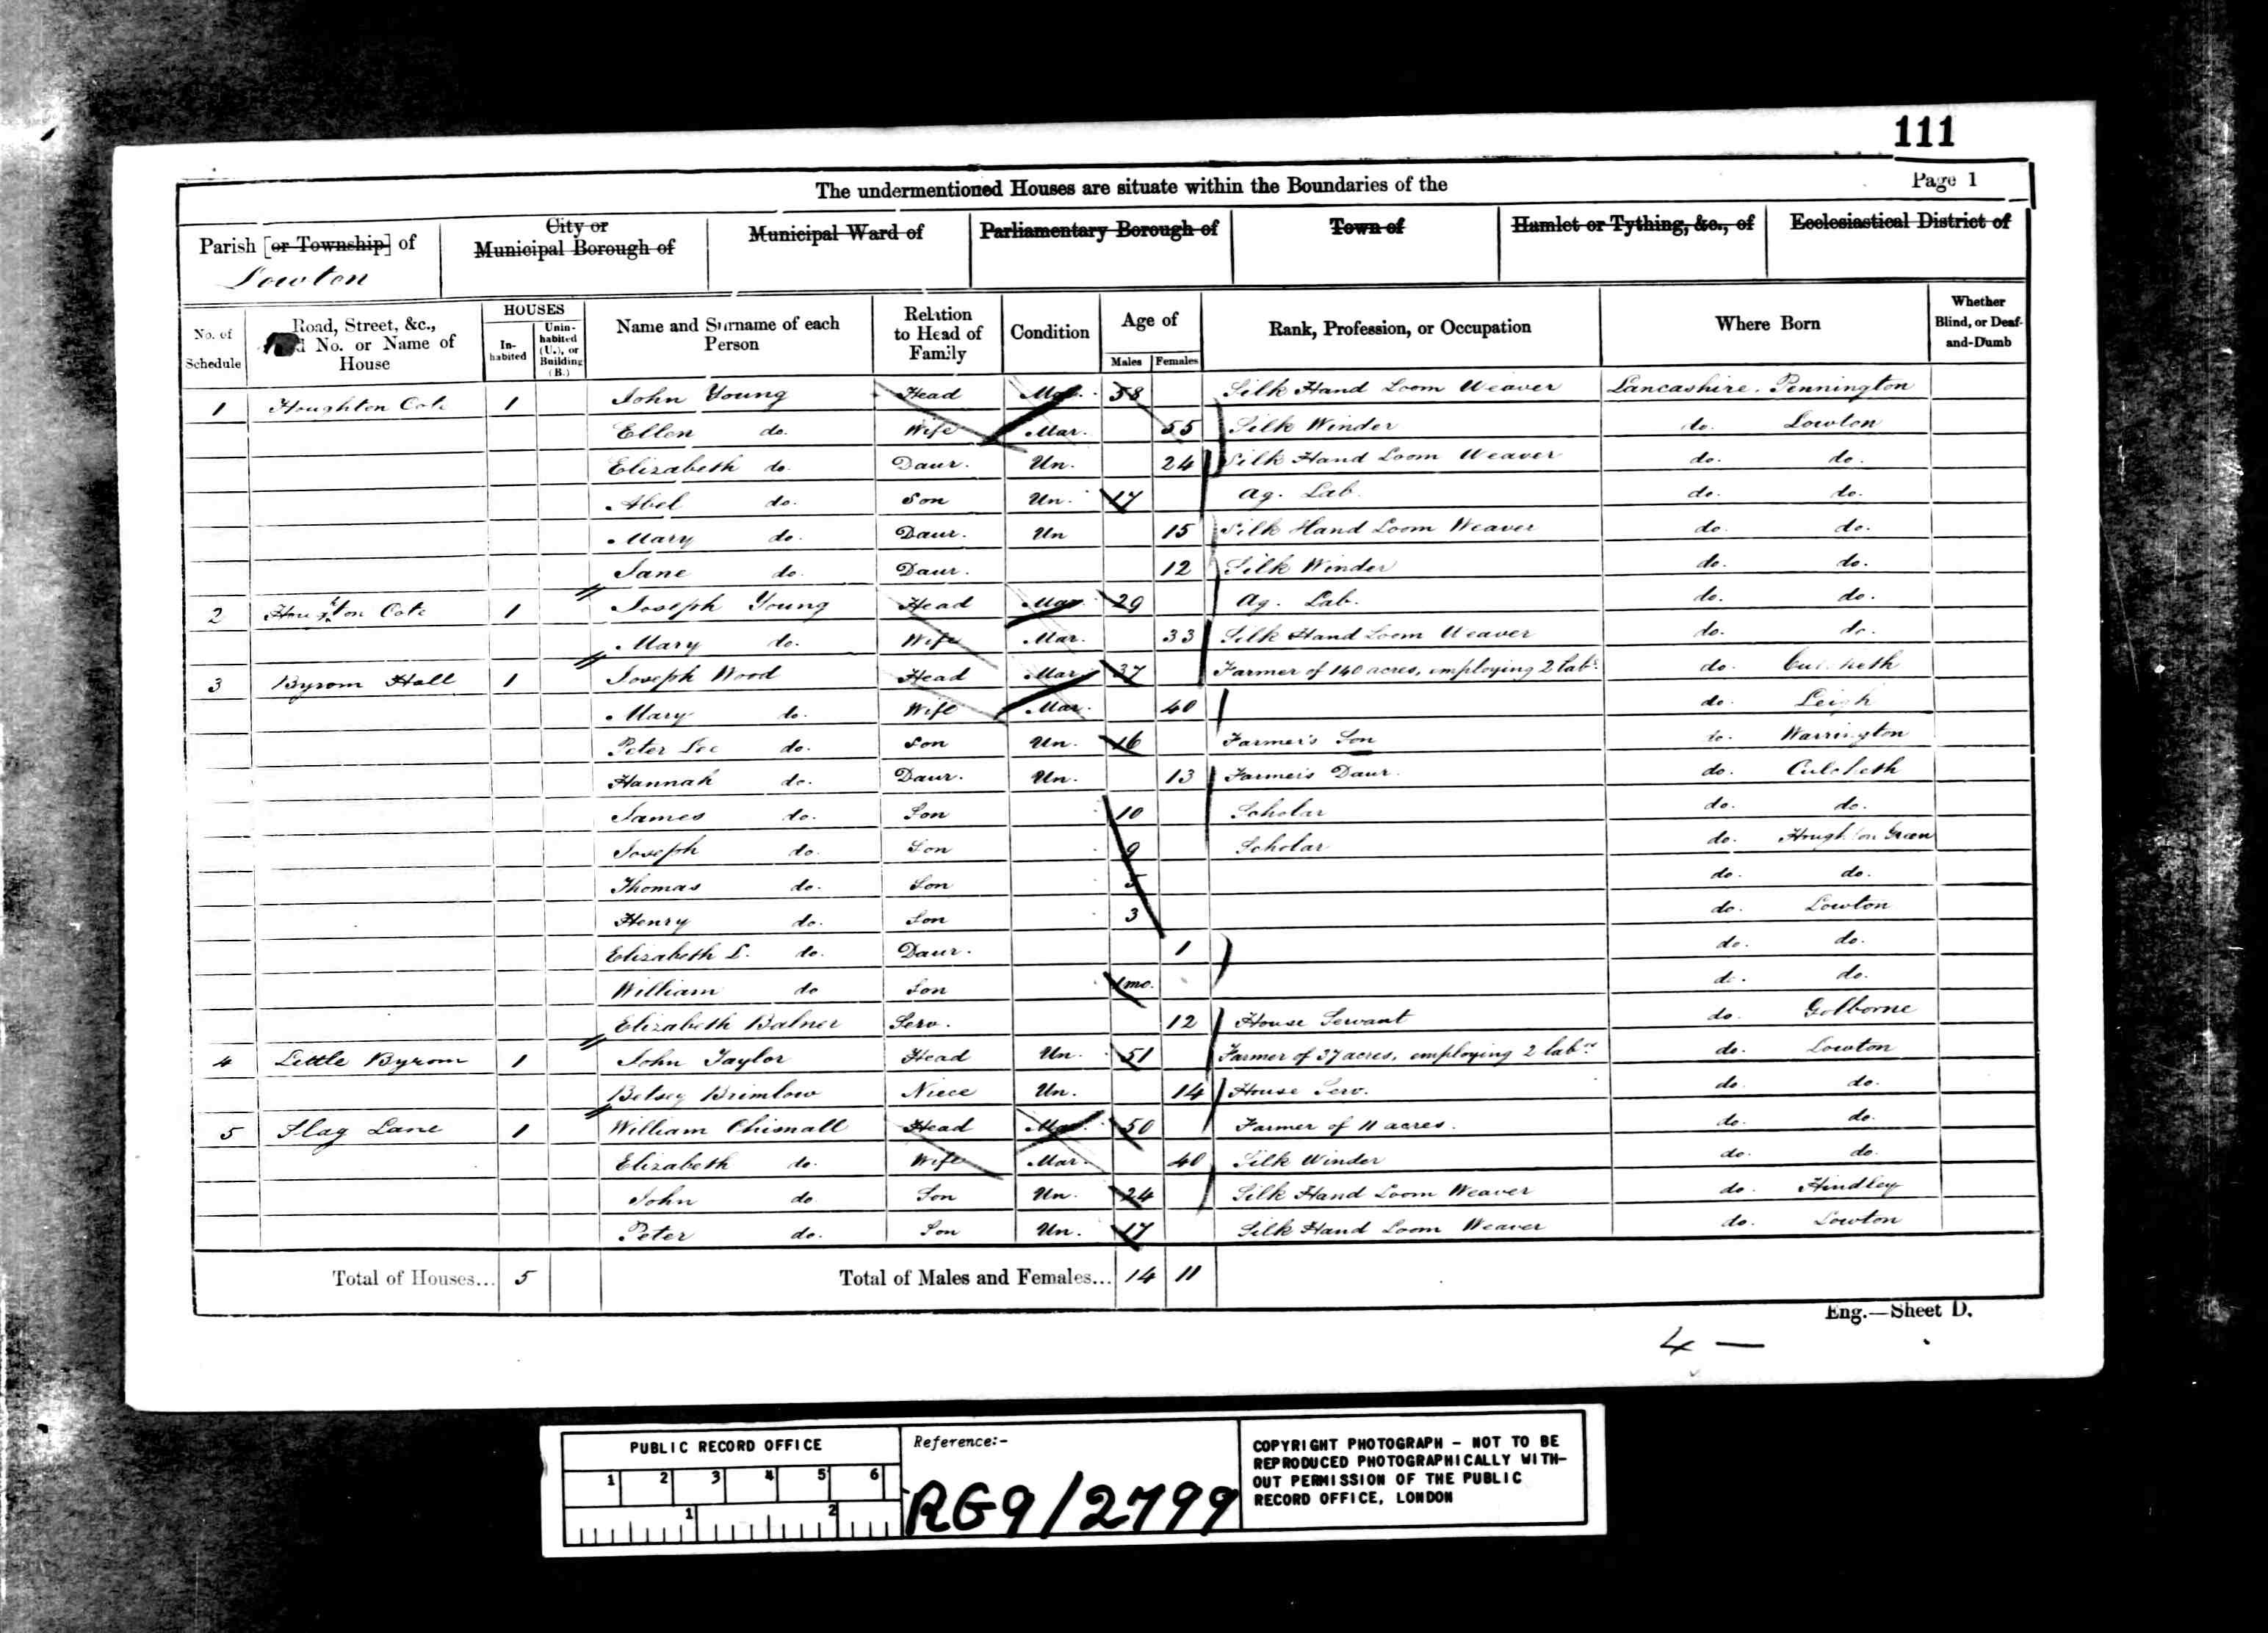 111
The undermentioned Houses are situate within the Boundaries of the Page 1
Parish [or Township] of City or Municipal Borough of Municipal Ward of Parliamentary Borough of Town of Hamlet or Tything, &c., of Ecclesiastical District of
Lowton
No. of Schedule Road, Street, &c., No. or Name of House HOUSES Inhabited Uninhabited (U.), or Building (B.) Name and Surname of each Person Relation to Head of Family Condition Age of Males Females Rank, Profession, or Occupation Where Born Whether Blind, or Deaf-and-Dumb
1 Houghton Cote 1 John Young Head Mar. 58 Silk Hand Loom Weaver Lancashire. Pennington
Ellen do. Wife Mar. 55 Silk Winder do. Lowton
Elizabeth do. Daur. Un. 24 Silk Hand Loom Weaver do. do.
Abel do. Son Un. 17 Ag. Lab. do. do.
Mary do. Daur. Un 15 Silk Hand Loom Weaver do. do.
Jane do. Daur. 12 Silk Winder do. do.
2 Houghton Cote 1 Joseph Young Head Mar. 29 Ag. Lab. do. do.
Mary do. Wife Mar. 33 Silk Hand Loom Weaver do. do.
3 Byrom Hall 1 Joseph Wood Head Mar. 37 Farmer of 140 acres, employing 2 labrs do. Culcheth
Mary do. Wife Mar. 40 do. Leigh
Peter Lee do. Son Un. 16 Farmer's Son do. Warrington
Hannah do. Daur. Un. 13 Farmer's Daur. do. Culcheth
James do. Son 10 Scholar do. do.
Joseph do. Son 9 Scholar do. Houghton Green
Thomas do. Son 5 do. do.
Henry do. Son 3 do. Lowton
Elizabeth L. do. Daur. 1 do. do.
William do Son 1mo. do. do.
Elizabeth Balner Serv. 12 House Servant do. Golborne
4 Little Byrom 1 John Taylor Head Un. 51 Farmer of 37 acres, employing 2 labrs do. Lowton
Betsey Brimlow Niece Un. 14 House Serv. do. do.
5 Slag Lane 1 William Chisnall Head Mar. 50 Farmer of 11 acres. do. do.
Elizabeth do. Wife Mar. 40 Silk Winder do. do.
John do Son Un. 24 Silk Hand Loom Weaver do. Hindley
Peter do. Son Un. 17 Silk Hand Loom Weaver do. Lowton
Total of Houses... 5 Total of Males and Females... 14 11
Eng.—Sheet D.
4 —
PUBLIC RECORD OFFICE
1 2 3 4 5 6
1 2
Reference:-
RG9/2799
COPYRIGHT PHOTOGRAPH - NOT TO BE
REPRODUCED PHOTOGRAPHICALLY WITH-
OUT PERMISSION OF THE PUBLIC
RECORD OFFICE, LONDON